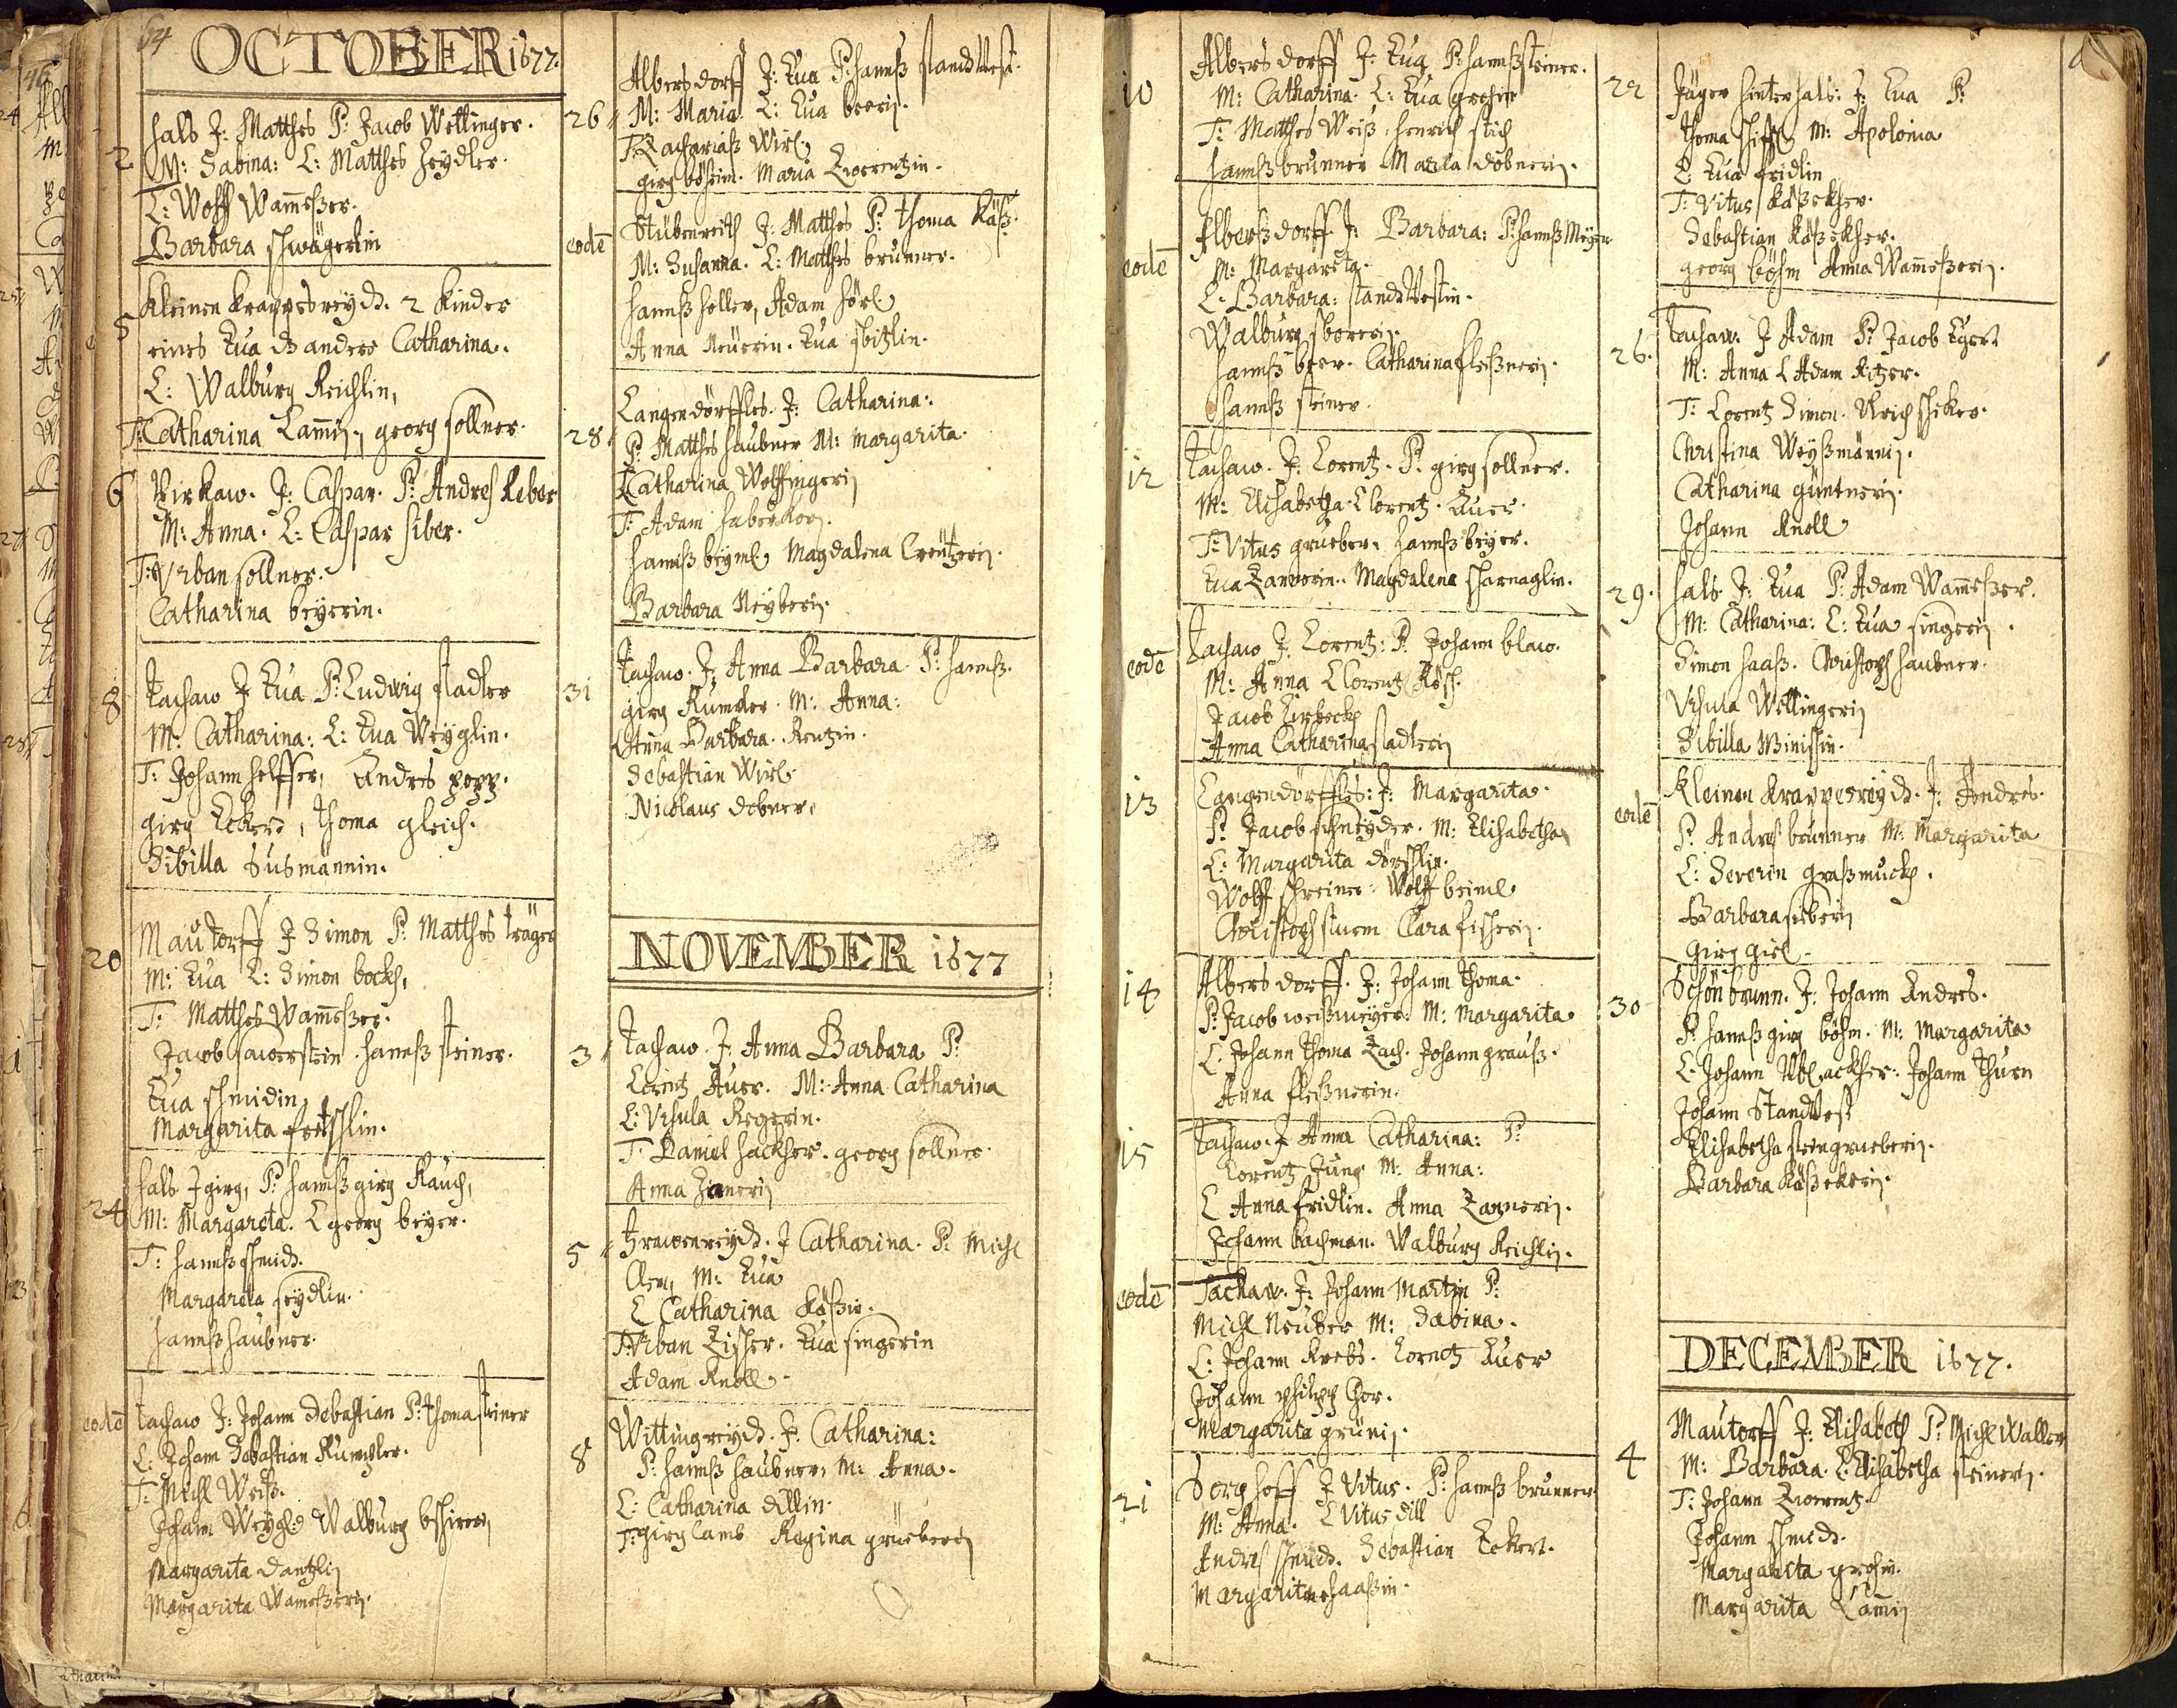 64
OCTOBER 1677.
2
Hals J: Matthes P: Jacob Wettinger.
M: Sabina: L: Matthes Heydler.
L: Wolff Wameßer.
Barbara schwägerlin
5
Kleinen Krappesreydt. 2 Kinder
eines Eua ds andere Catharina.
L: Walburg Reichlin,
T: Catharina Lamin, georg sollner.
6
Pirkaw. J: Caspar. P: Andres Leber
M: Anna. L: Caspar siber.
T: Vrban sollner.
Catharina beyerin.
8
Tachaw J Eua P: Ludwig stadler
M: Catharina: L: Eua Weyglin.
T: Johann helffer, Andres popp.
girg Eckert, Thoma gleich.
Sibilla Susmannin.
20
Mautorff J Simon P: Matthes träger
M: Eua L: Simon bockh,
T: Matthes Wameßer.
Jacob sawerstein. Hannß steiner.
Eua schmidin,
Margarita fretschlin.
24
Hals J girg, P: hannß girg Rauch,
M: Margareta. L georg beyer.
T: hannß schmidt.
Margareta seydlin.
hannß haubner.
eode
Tachaw J: Johann Sebastian P: Thoma steiner
L: Johann Sebastian Kumpler.
T: Michl Weiß.
Johann Weyghl Walburg
Margarita dantzlin
Margarita Wameßerin.
26
Albersdorff J: Eua P: hannß standtVest.
M: Maria. L: Eua beerin.
T: Zachariaß Wirl,
girg böheim. Maria Zworentzin.
eode
Stübenreith J: Matthes P: Thoma Käß.
M: Susanna. L: Matthes brunner.
hannß heller, Adam hörl
Anna Meüerin. Eua spitzlin.
28
Langendörffles. J: Catharina:
P: Matthes haubner M: Margarita.
L Catharina Wolffingerin
T: Adam haberkorn.
hannß beyml Magdalena Creützerin.
Barbara Neyberin.
31
Tachaw. J: Anna Barbara P: hannß
girg Kumpler. M: Anna:
L Anna Barbara. Rentzin.
Sebastian Wirl.
Nicolaus dobner.
NOVEMBER 1677
3
Tachaw. J: Anna Barbara P:
Lorentz Auer. M: Anna Catharina
L: Vrsula Regerin.
T: Daniel hackher. georg sollner.
Anna Zanerin
5
Frawenreydt. J Catharina. P: Michl
M: Eua
L Catharina Käßin.
T: Vrban Lischer. Eua singerin
Adam Knoll.
8
Wittingreydt. J. Catharina:
P: hannß haubner. M: Anna.
L: Catharina dillin.
T: girg Lamb Regina grüeberin
10
Albersdorff J: Eua P: hannß steiner.
M: Catharina. L: Eua groshin
T: Matthes Weiß. henrich stich
hannß brunner Maria dobnerin.
eode
Albersdorff. J: Barbara: P: hannß Meyer
M: Margareta.
L. Barbara: standtVestin.
Walburg sporerin.
hannß beer. Catharina fleißnerin.
hannß steiner.
12
Tachaw. J: Lorentz. P: girg sollner.
M: Elisabetha. L Lorentz. Auer.
T: Vitus grueber. hannß beyer.
Eua Zannerin. Magdalena scharnaglin.
eode
Tachaw J: Lorentz: P: Johann blaw.
M: Anna L Lorentz Rösch.
Jacob Hirbeckh
Anna Catharina stadlerin
13
Langendörffles: J: Margarita.
P: Jacob schneyder. M: Elisabetha
L: Margarita dörschlin.
Wolff schreiner. Wolff beiml
Christoph sturm Clara fischerin.
14
Albersdorff. J: Johann Thoma.
P: Jacob weißmeyer. M: Margarita
L. Johann Thoma Zach. Johann grauß.
Anna fleißnerin.
15
Tachaw. J Anna Catharina: P:
Lorentz Jung M: Anna:
L Anna fridlin. Anna Zannerin.
Johann bachman. Walburg Reichlin.
eode
Tachaw. J: Johann Martin P:
Michl Neuber M: Sabina.
L: Johann Krebs. Lorentz Auer
Johann philipp Chor.
Margarita grünin.
21
Sorghoff J Vitus. P: hannß brunner
M: Anna. L Vitus dill
Andres schmidt. Sebastian Eckert.
Margarita haaßin.
22
Jäger hinter hals: J: Eua P:
Thoma M: Apolonia
L: Eua fridlin
T: Vitus Käßekher.
Sebastian Käßekher.
georg böhm Anna Wameßerin.
26.
Tachaw. J Adam P: Jacob Eger
M: Anna L Adam Ritzer.
T: Lorentz Simon. Vlrich
Christina Weyßmännin.
Catharina güntnerin.
Johann Knoll
29.
Hals J: Eua P: Adam Wameßer.
M: Catharina: L: Eua singerin.
Simon haaß. Christoph haubner.
Vrsula Wettingerin
Sibilla Minichin.
eode
Kleinen Krappesreydt. J: Andres.
P: Andres brunner M: Margarita
L: Severin graßmuckh.
Barbara siberin
Girg girl.
30
Schönbrunn. J: Johann Andres.
P: hannß girg böhm. M: Margarita
L: Johann Vblackher. Johann Thurn
Johann StandVest
Elisabetha steingrueberin.
Barbara Käßekerin.
DECEMBER 1677.
4
Mautorff J: Elisabeth P: Michl Waller
M: Barbara L: Elisabetha steinerin.
T: Johann Zworentz.
Johann schmidt.
Margareta groshin.
Margarita Lamin